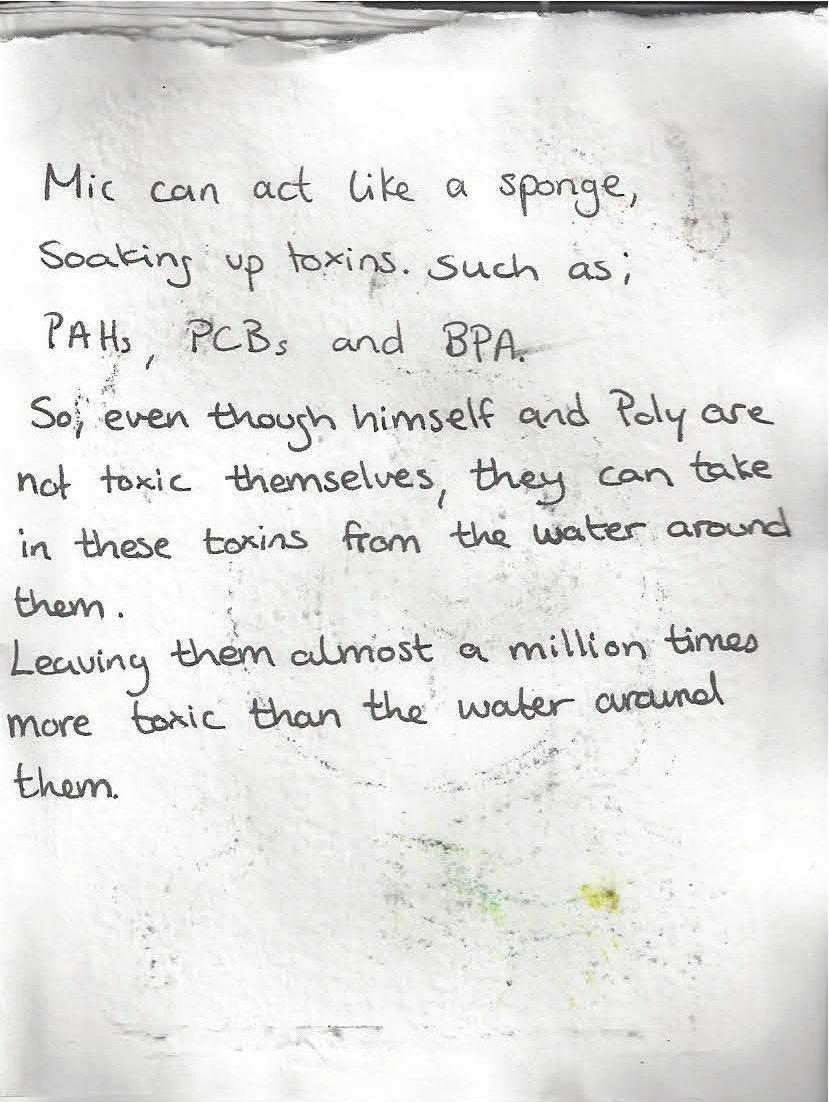 Mic can act like a sponge,
Soaking up toxins. such as;
PAHs, PCBs and BPA.
So, even though himself and Poly are
not toxic themselves, they can take
in these toxins from the water around
them.
Leaving them almost a million times
more toxic than the water around
them.